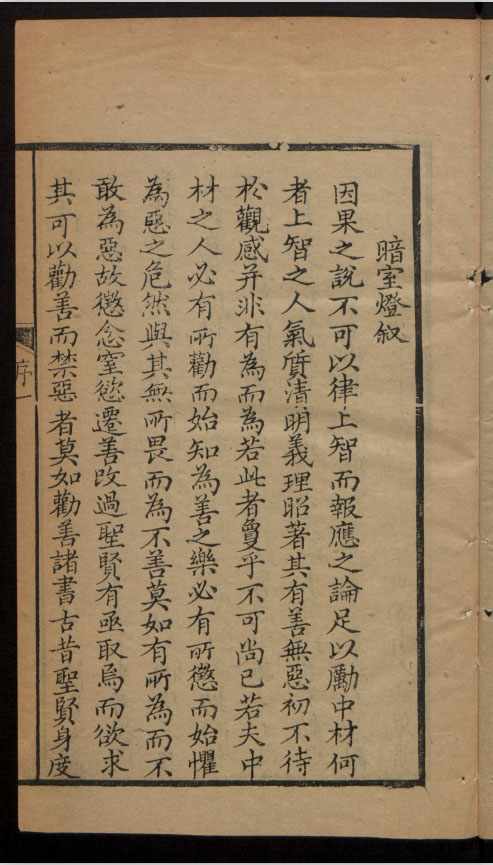 暗室燈叙
因果之說不可以律上智而報應之論足以勵中材何
者上智之人氣質清明義理昭著其有善無惡初不待
於觀感并非有為而為若此者敻乎不可尚已若夫中
材之人必有所勸而始知為善之樂必有所懲而始懼
為惡之危然與其無所畏而為不善莫如有所為而不
敢為惡故懲忿窒慾遷善改過聖賢有亟取焉而欲求
其可以勸善而禁惡者莫如勸善諸書古昔聖賢身度
序一